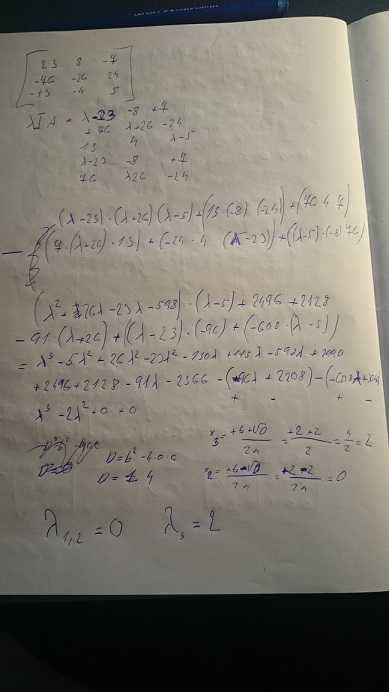 23 8 -7
-76 -26 24
-13 -4 5
λI A = λ-23 -8 +7
+76 λ+26 -24
13 4 λ-5
λ-23 -8 +7
76 λ26 -24
(λ-23)·(λ+26)(λ-5)+(13·(-8)·(-24))+(76·4·7)
- (7·(λ+26)·13)+(-24·4 (λ-23))+((λ-5)·(-8)·76)
(λ²+26λ-23λ-598)·(λ-5)+2496+2128
-91·(λ+26)+((λ-23)·(-96)+(-608·(λ-5))
= λ³-5λ²+26λ²-23λ²-130λ+115λ-598λ+2990
+2496+2128-91λ-2366-(-96λ+2208)-(-608λ+
+ - + -
λ³-2λ²+0+0
D=b²-4·a·c
D= 4
x = +b+√D/2a = +2+2/2 = 4/2 = 2
x = +b-√D/2a = +2-2/2a = 0
λ₁,₂=0 λ₃=2